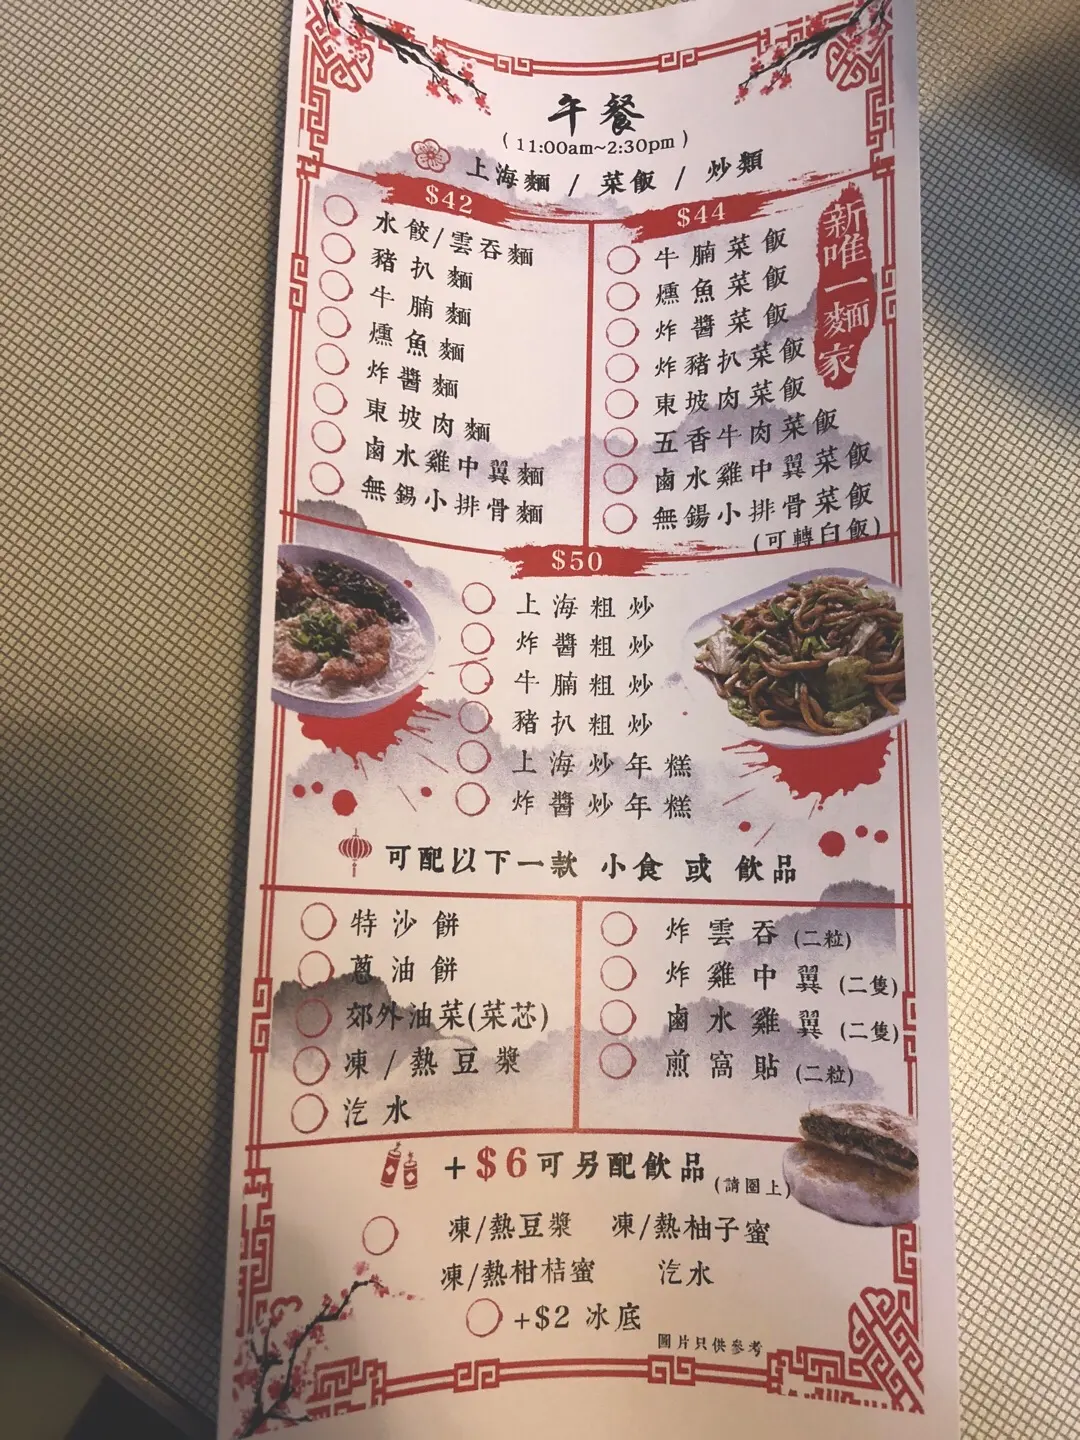 午餐
(11:00am~2:30pm)
上海麵 / 菜飯 / 炒類
$42
水餃/雲吞麵
豬扒麵
牛腩麵
燻魚麵
炸醬麵
東坡肉麵
鹵水雞中翼麵
無錫小排骨麵
$44
牛腩菜飯
燻魚菜飯
炸醬菜飯
炸豬扒菜飯
東坡肉菜飯
五香牛肉菜飯
鹵水雞中翼菜飯
無錫小排骨菜飯
(可轉白飯)
新唯一麵家
$50
上海粗炒
炸醬粗炒
牛腩粗炒
豬扒粗炒
上海炒年糕
炸醬炒年糕
可配以下一款 小食 或 飲品
特沙餅
蔥油餅
郊外油菜(菜芯)
凍/熱豆漿
汽水
炸雲吞(二粒)
炸雞中翼(二隻)
鹵水雞翼(二隻)
煎窩貼(二粒)
+$6可另配飲品(請圈上)
凍/熱豆漿 凍/熱柚子蜜
凍/熱柑桔蜜 汽水
+$2 冰底
圖片只供參考